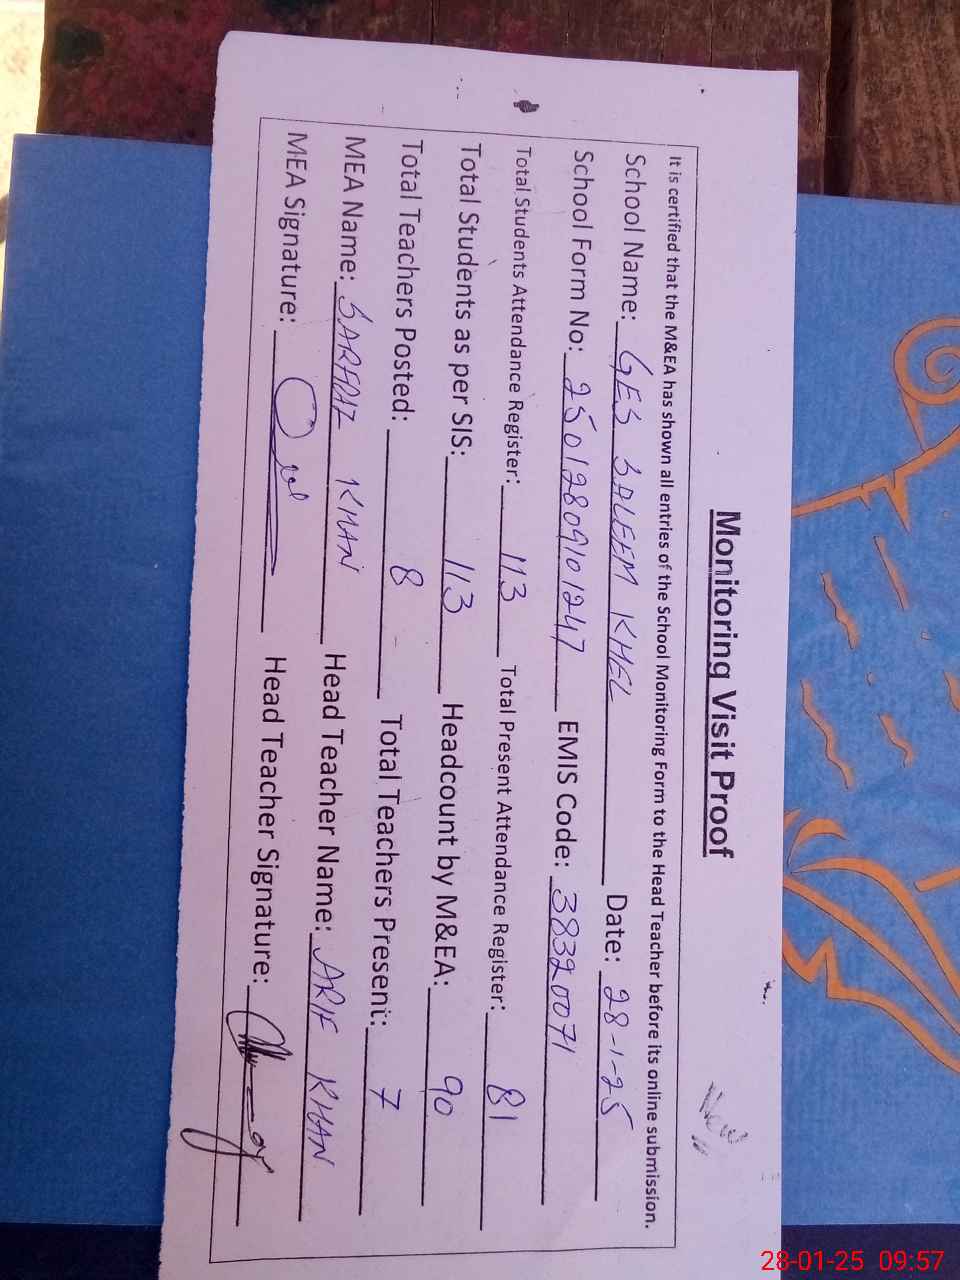 Monitoring Visit Proof
It is certified that the M&EA has shown all entries of the School Monitoring Form to the Head Teacher before its online submission.
School Name: GES SALEEM KHEL Date: 28-1-25
School Form No: 25012809101247 EMIS Code: 38320071
Total Students Attendance Register: 113 Total Present Attendance Register: 81
Total Students as per SIS: 113 Headcount by M&EA: 90
Total Teachers Posted: 8 Total Teachers Present: 7
MEA Name: SARFARAZ KHAN Head Teacher Name: ARIF KHAN
MEA Signature: Head Teacher Signature:
28-01-25 09:57